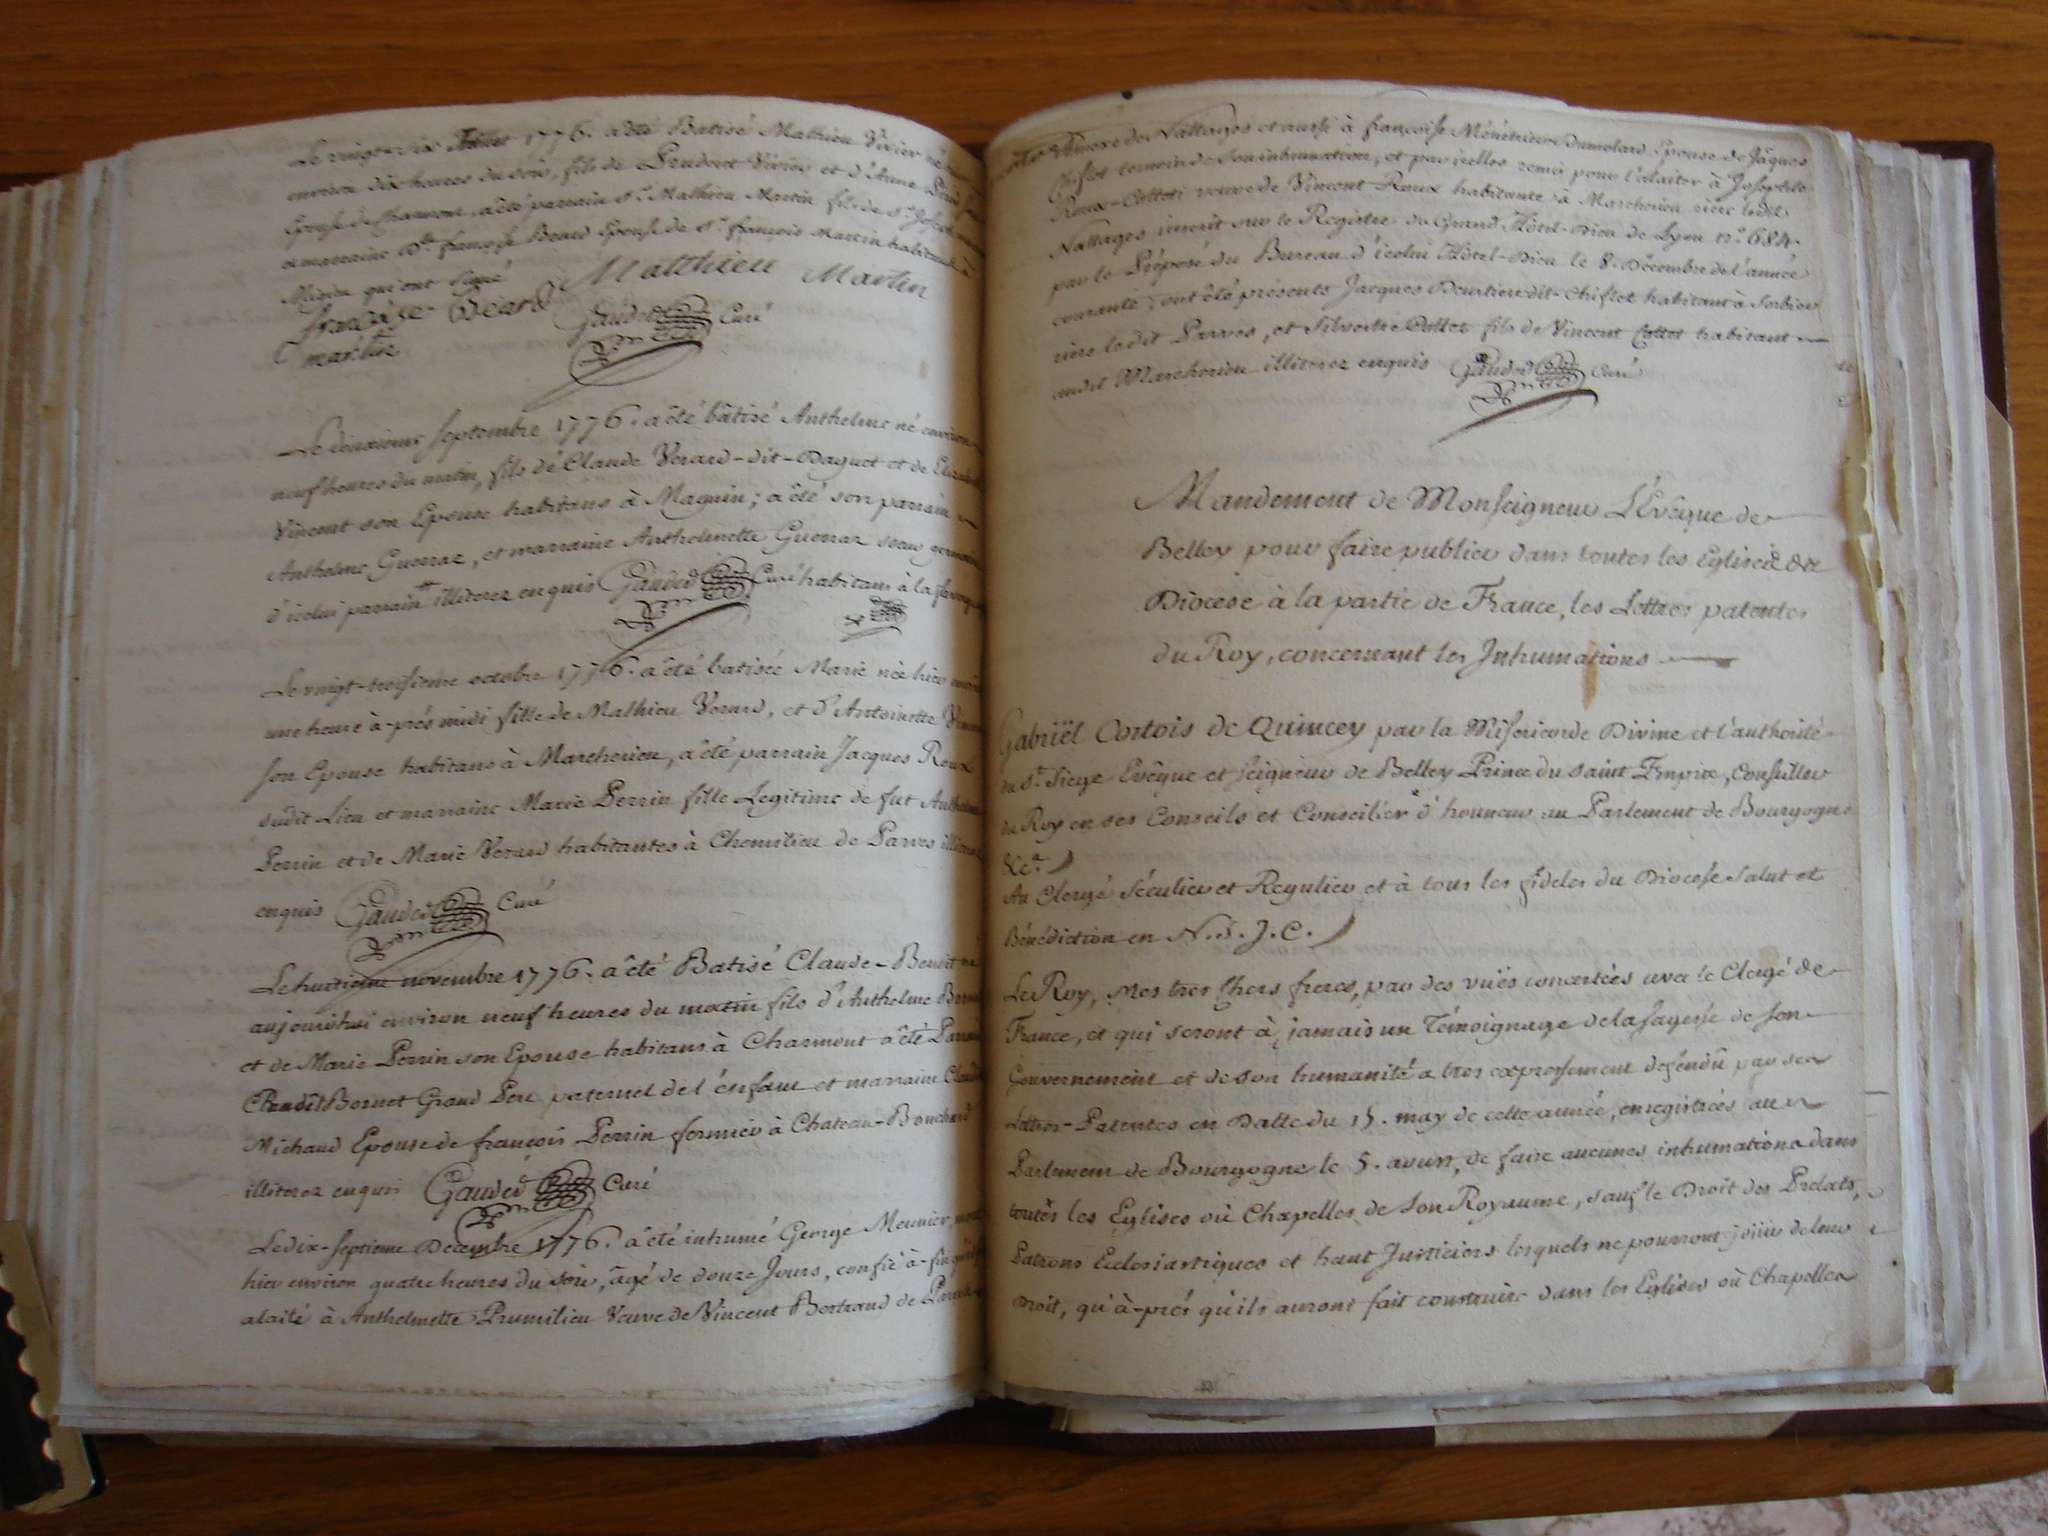 Le vingt-six 1776. a été Batisé Mathieu Vivier né
environ dix heures du soir, fils de Prudent Vivier et d'Anne
Epouse de Chamront, a été parrain Sr. Mathieu Martin fils de Sr. Joseph
et marraine Dlle françoise Beard Epouse de Sr. françois Martin habitans à
Migieu qui ont signé
françoise Beard Matthieu Martin
martin Gauded Curé
Le deuxieme septembre 1776. a été bâtisé Anthelme né environ
neuf heures du matin, fils de Claude Verard-dit-Daguet et de
Vincent son Epouse habitans à Magnin; a été son parrain
Anthelme Guerraz, et marraine Anthelmette Guerraz soeur
d'icelui parrain illiterez enquis Gauded Curé habitans à la
Le vingt-troisieme octobre 1776. a été batisée Marie née hier
une heure à-prés midi fille de Mathieu Verard, et d'Antoinette
son Epouse habitans à Marchorieu, a été parrain Jacques Roux
dudit Lieu et marraine Marie Perrin fille Legitime de fut
Perrin et de Marie Verard habitantes à Chemilieu de Parves
enquis Gauded Curé
Le huitieme novembre 1776. a été Batisé Claude-Benoit né
aujourd'hui environ neuf heures du matin fils d'Anthelme
et de Marie Perrin son Epouse habitans à Charmont a été
Bernet Grand Pere paternel de l'enfant et marraine
Michaud Epouse de françois Perrin fermier à Chateau-Bouchard
illiterez enquis Gauded Curé
Le dix-septieme Decembre 1776. a été inhumé George Meunier
hier environ quatre heures du soir, âgé de douze Jours, confié à-fin
alaité à Anthelmette Prumilieu Veuve de Vincent Bertrand de
de Nattages et aussi à françoise Ménétrieux Dumolard Epouse de Jâques
Chiflot temoin de son inhumation, et par icelles remis pour l'alaiter à Josephte
Roux-Collet veuve de Vincent Roux habitante à Marchorieu riere ledit
Nattages inscrit sur le Registre du Grand Hôtel-Dieu de Lyon n°. 684.
par le Préposé du Bureau d'icelui Hôtel-Dieu le 8. Décembre de l'année
courante; ont été présents Jacques dit-Chiflot habitant à Sorbier
riere ledit Parves, et Silvestre Collet fils de Vincent Collet habitant
audit Marchorieu illiterez enquis Gauded Curé
Mandement de Monseigneur L'Evêque de
Belley pour faire publier dans toutes les Eglises de
Diocese à la partie de France, les Lettres patentes
du Roy, concernant les Inhumations
Gabriël Cortois de Quincey par la Misericorde Divine et l'authorité
du St. Siege Evêque et seigneur de Belley Prince du saint Empire, Conseiller
du Roy en ses Conseils et Conseiller d'honneur au Parlement de Bourgogne
&ca.
Au Clergé Séculier et Regulier et à tous les fideles du Diocése Salut et
Bénédiction en N. S. J. C.
Le Roy, Mes tres Chers freres, par des vuës concertées avec le Clergé de
France, et qui seront à jamais un Témoignage de la sagesse de son
Gouvernement et de son humanité a tres expressement défendû par ses
Lettres-Patentes en Datte du 15. may de cette année, enregistrées au
Parlement de Bourgogne le 5. aoust, de faire aucunes inhumations dans
toutes les Eglises où Chapelles de Son Royaume, sauf le Droit des Prelats,
Patrons Eclesiastiques et haut Justiciers lesquels ne pourront joüir de leur
Droit, qu'à-prés qu'ils auront fait construire dans les Eglises où Chapelles